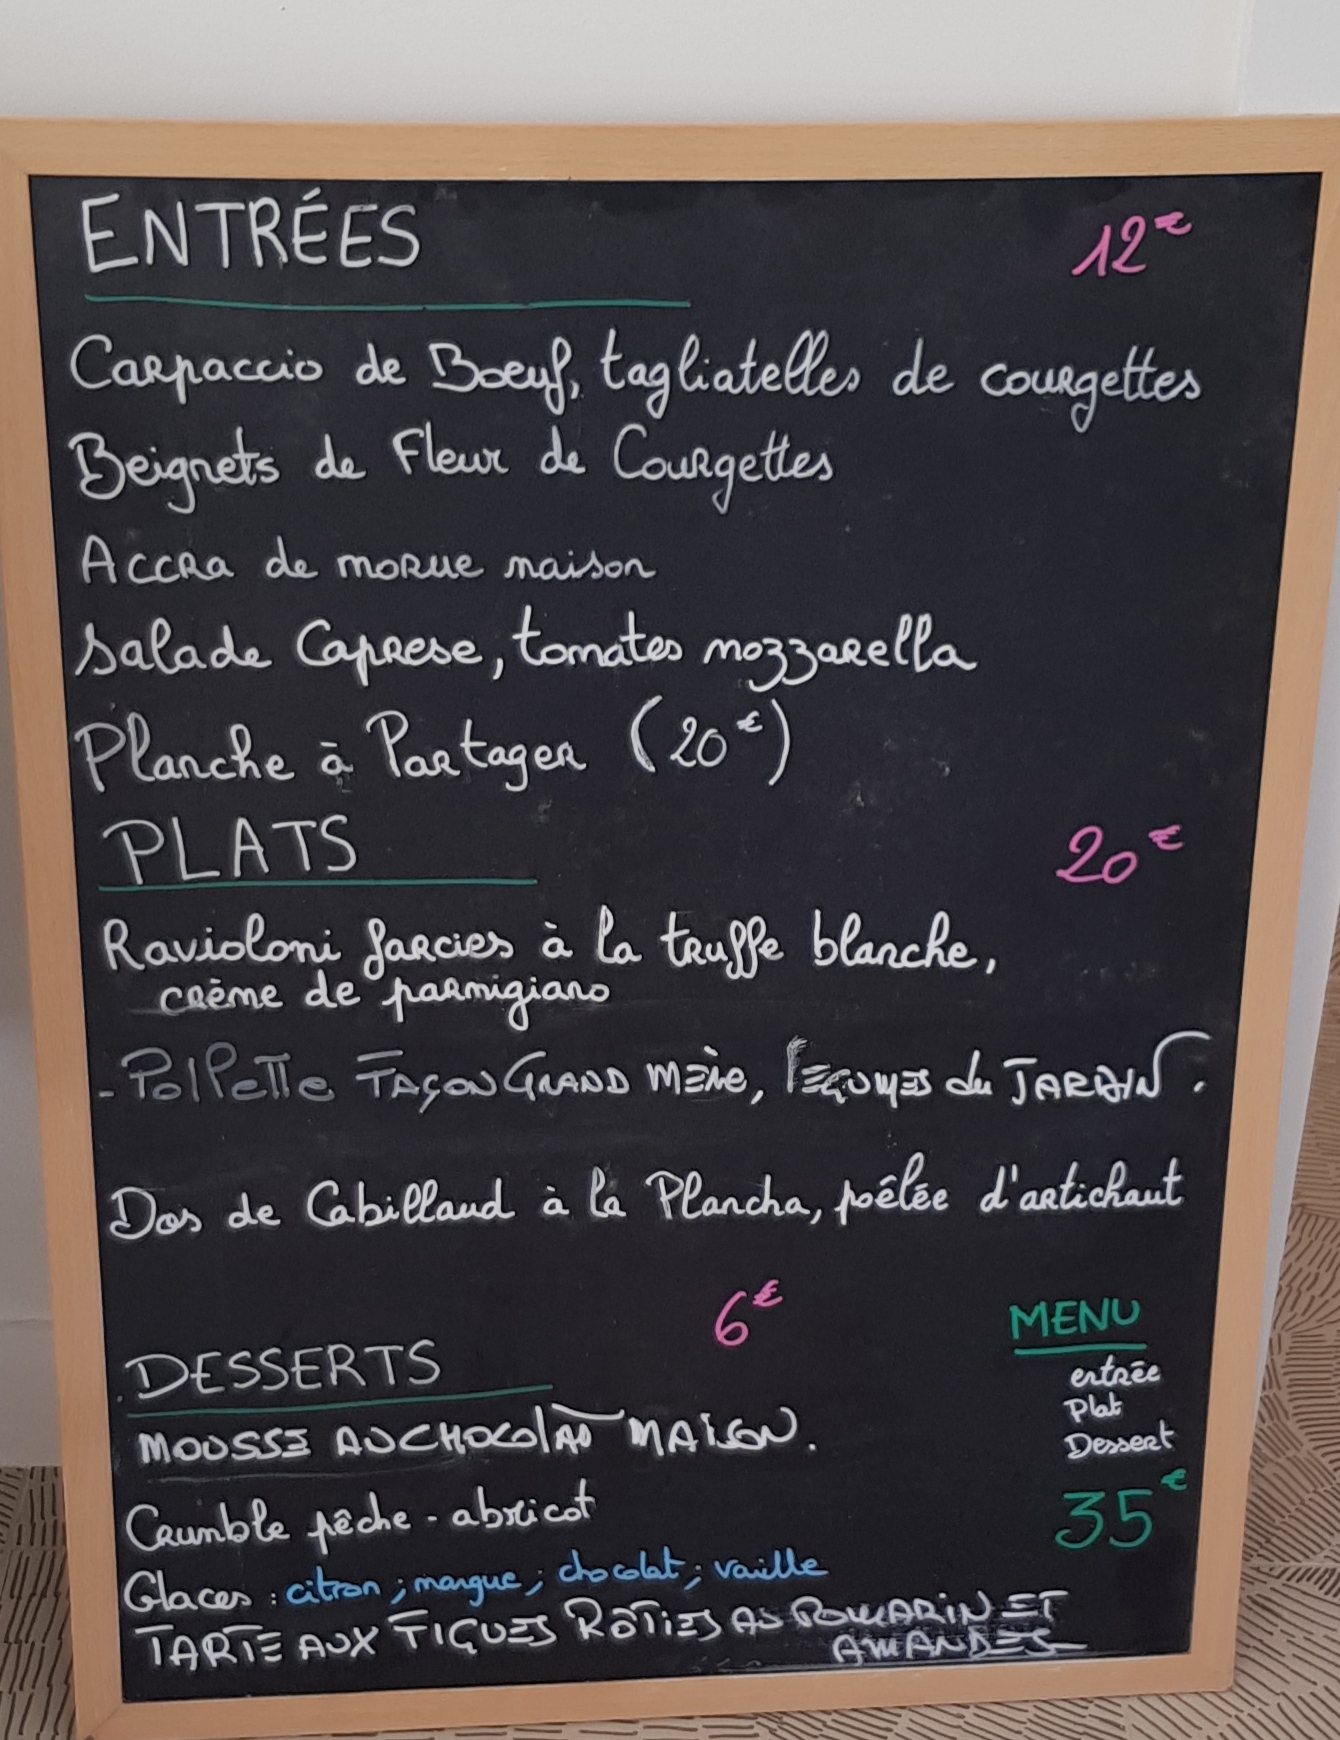 ENTRÉES 12€
Carpaccio de Boeuf, tagliatelles de courgettes
Beignets de Fleur de Courgettes
Accra de morue maison
Salade Caprese, tomates mozzarella
Planche à Partager (20€)
PLATS 20€
Ravioloni farcies à la truffe blanche,
crème de parmigiano
- Polpette FAÇON GRAND MÈRE, légumes du JARDIN.
Dos de Cabillaud à la Plancha, poêlée d'artichaut
6€
DESSERTS
MOUSSE AU CHOCOLAT MAISON.
Crumble pêche - abricot
Glaces : citron ; mangue ; chocolat ; vaille
TARTE AUX FIGUES RÔTIES AU ROMARIN ET
AMANDES
MENU
entrée
Plat
Dessert
35€